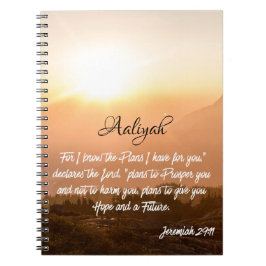 Aaliyah
For I know the Plans I have for you,"
declares the Lord, "plans to Prosper you
and not to harm you, plans to give you
Hope and a Future.
Jeremiah 29:11